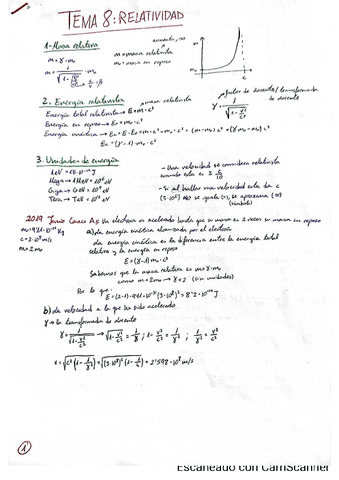 TEMA 8: RELATIVIDAD
1- Masa relativa
aumenta, ∞
m = γ · m₀
m = masa relativista
m₀ = masa en reposo
m = 1/√(1 - v²/c²) · m₀
v/c = β
m₀
c
2. Energía relativista
masa relativista
Energía total relativista → E = m · c²
Energía en reposo → E₀ = m₀ · c²
Energía cinética → Ec = E - E₀ = m · c² - m₀ · c² = (m - m₀) · c² = (γ m₀ - m₀) c²
Ec = (γ - 1) · m₀ · c²
factor de Lorentz / transformada de Lorentz
γ = 1/√(1 - v²/c²)
3. Unidades de energía
Mega → 1 MeV = 10⁶ eV
Giga → GeV = 10⁹ eV
Tera → TeV = 10¹² eV
- Una velocidad se considera relativista
cuando esta es ≥ c/10
- Si al hallar una velocidad esta da c
(3·10⁸) NO se iguala (=), se aproxima (≈)
(símbolo)
2019 Junio Coincidentes A5 Un electrón es acelerado hasta que su masa es 2 veces su masa en reposo
c = 3·10⁸ m/s
m = 2m₀
a) La energía cinética alcanzada por el electrón
La energía cinética es la diferencia entre la energía total
relativista y la energía en reposo
E = (γ - 1) m₀ · c²
Sabemos que la masa relativa es m = γ · m₀
como m = 2m₀ → γ = 2 (sin unidades)
Por lo que:
E = (2 - 1) · 9'1·10⁻³¹ (3·10⁸)² = 8'2·10⁻¹⁴ J
b) La velocidad a la que ha sido acelerado
γ → la transformada de Lorentz
γ = 1/√(1 - v²/c²) → √(1 - v²/c²) = 1/γ ; 1 - v²/c² = 1/γ² ; 1 - 1/γ² = v²/c²
v = √(c² (1 - 1/γ²)) = √((3·10⁸)² (1 - 1/4)) = 2'598·10⁸ m/s
1
Escaneado con CamScanner